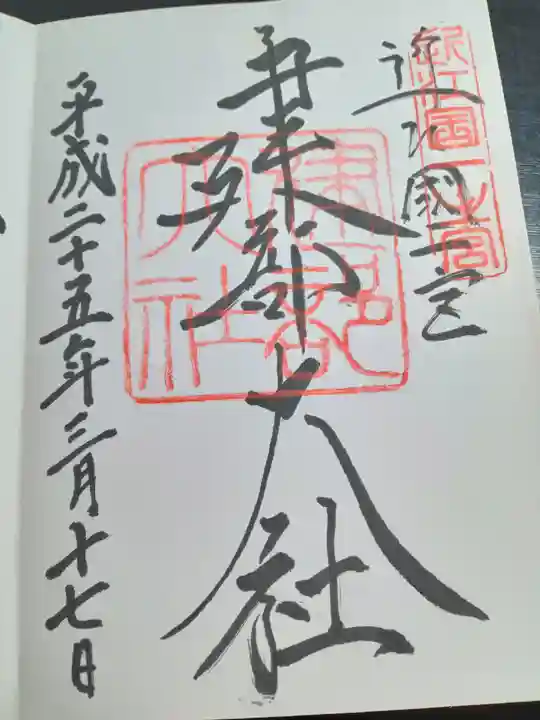 近江國一宮
近江国一之宮
建部大社
建部大社
平成二十五年三月十七日